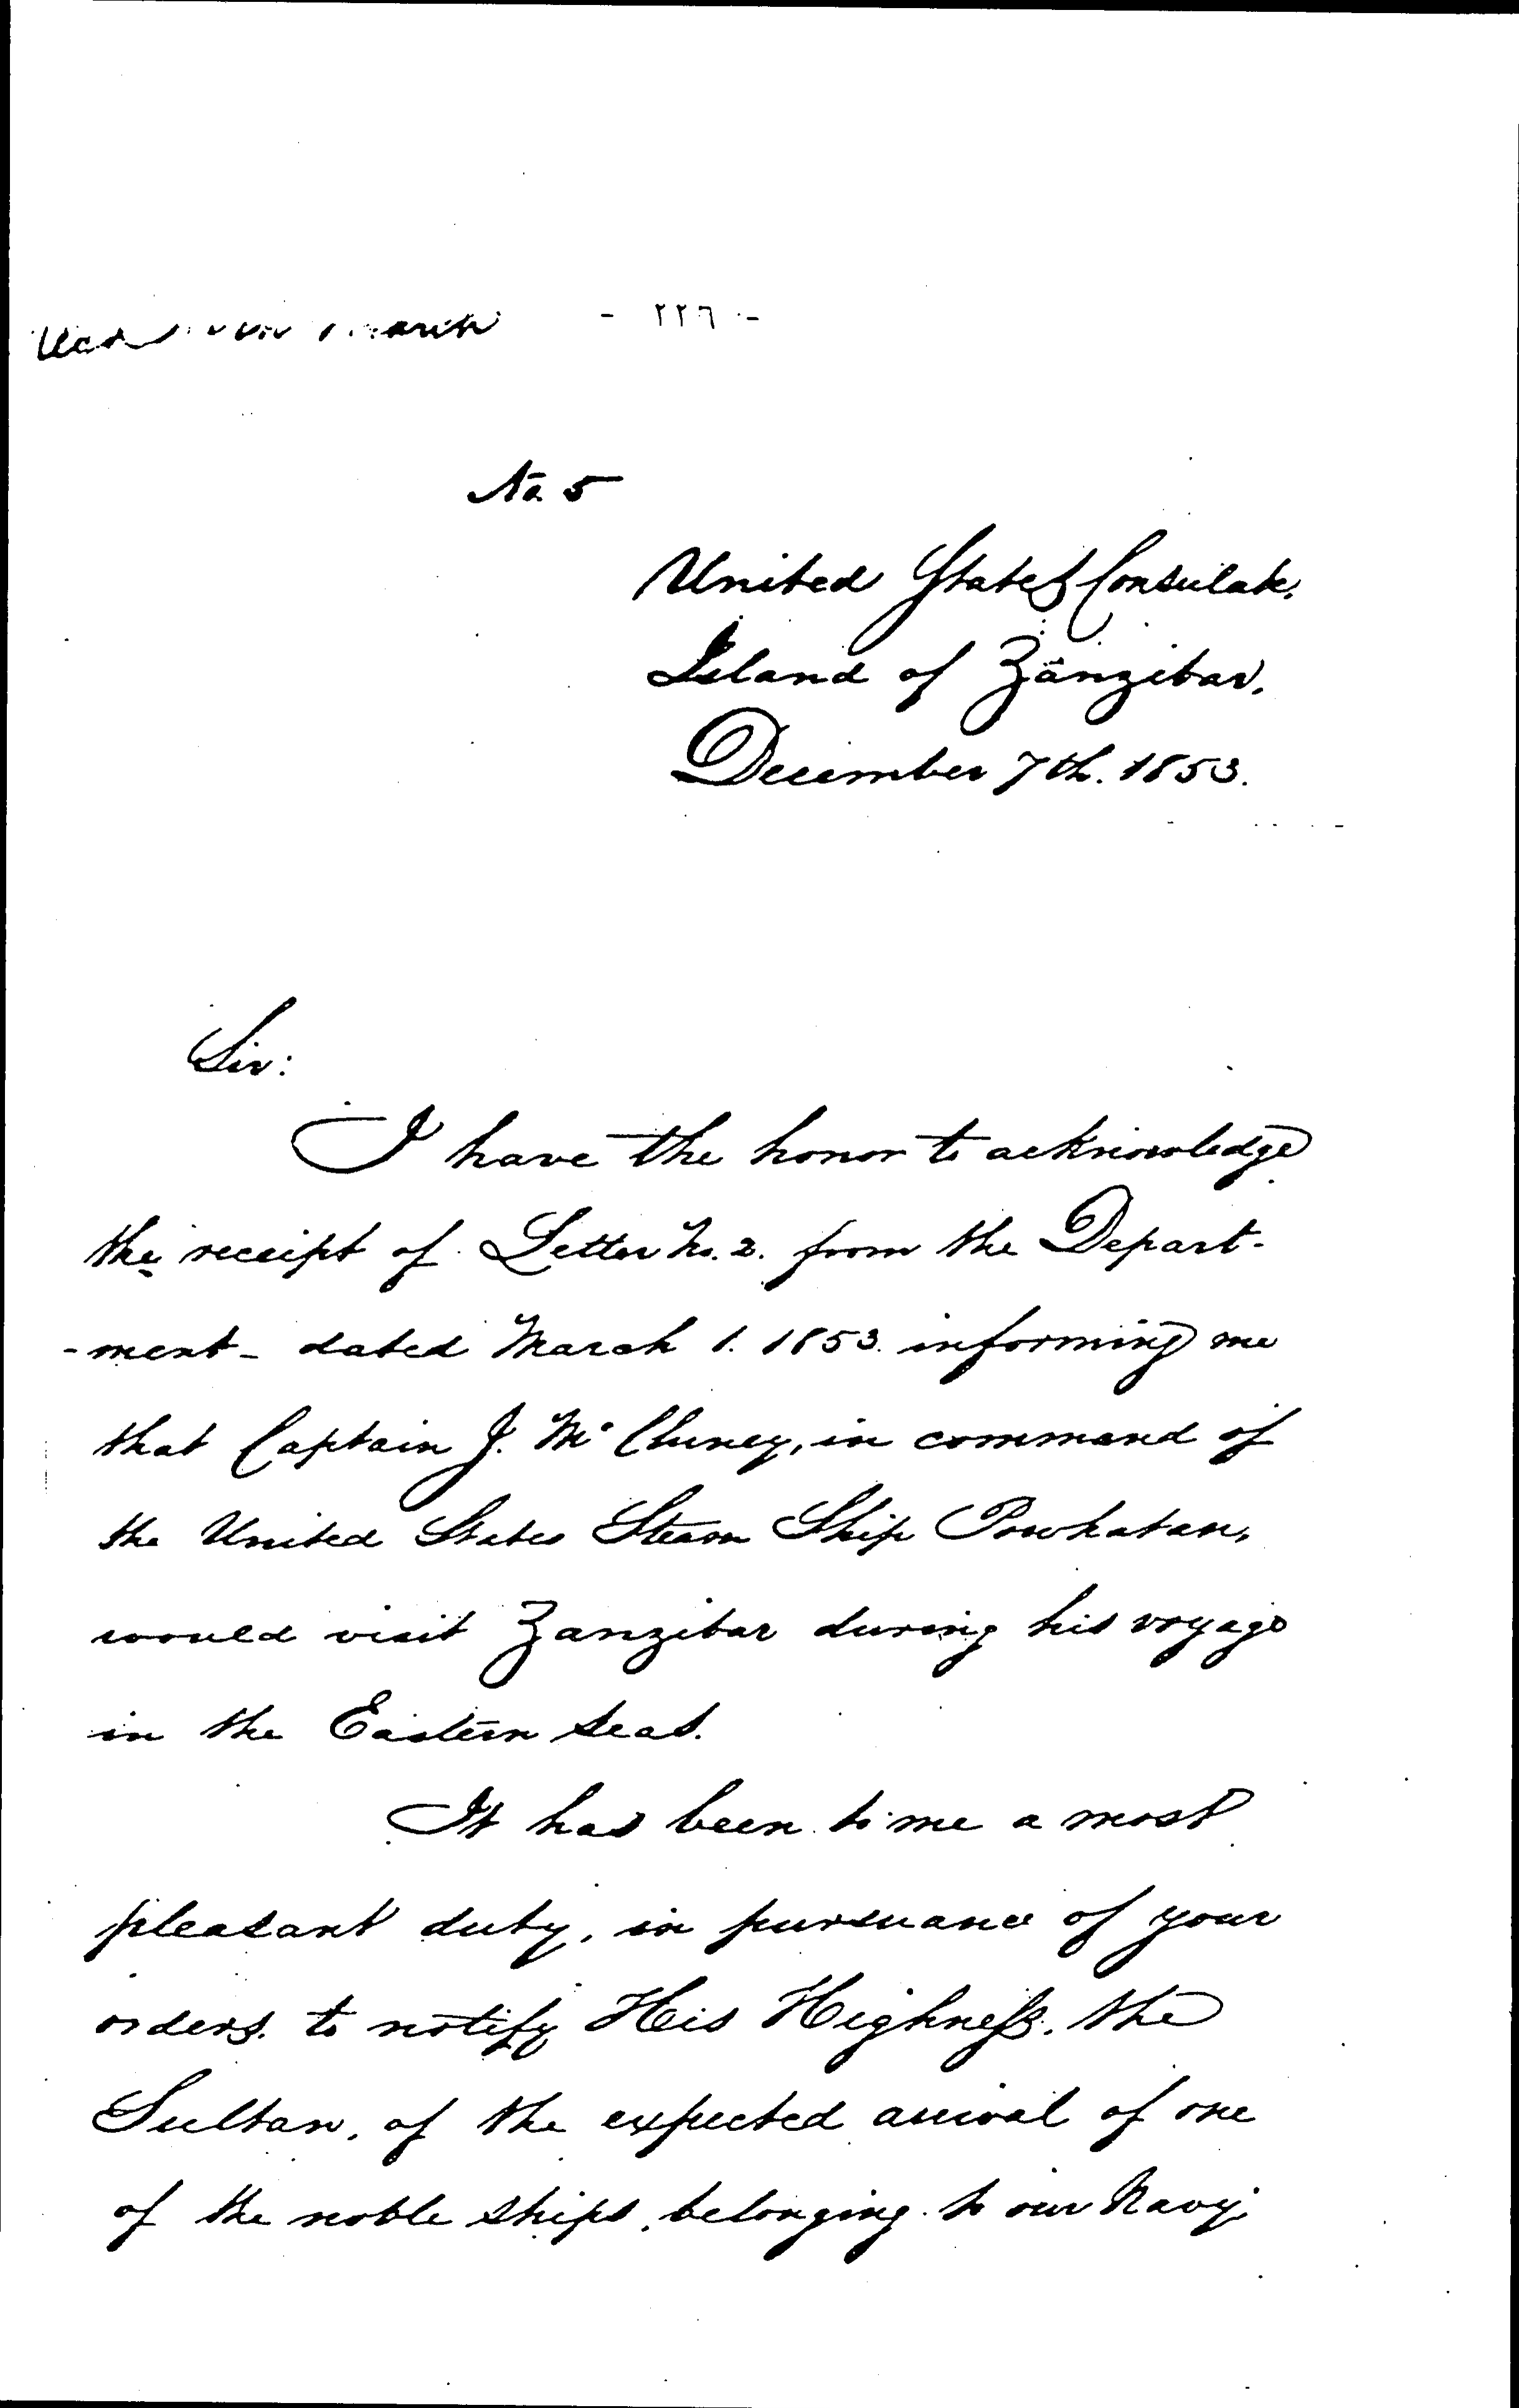 - ٢٢٦ -
No. 5
United States Consulate.
Island of Zanzibar.
December 7th. 1853.
Sir:
I have the honor to acknowledge
the receipt of Letter No. 2. from the Depart-
-ment - dated March 1. 1853. informing me
that Captain J. Mc Cluney, in command of
the United States Steam Ship Powhatan,
would visit Zanzibar during his voyage
in the Eastern seas.
It has been to me a most
pleasant duty, in pursuance of your
orders. to notify His Highneſs. the
Sultan, of the expected arrival of one
of the noble ships, belonging to our Navy,